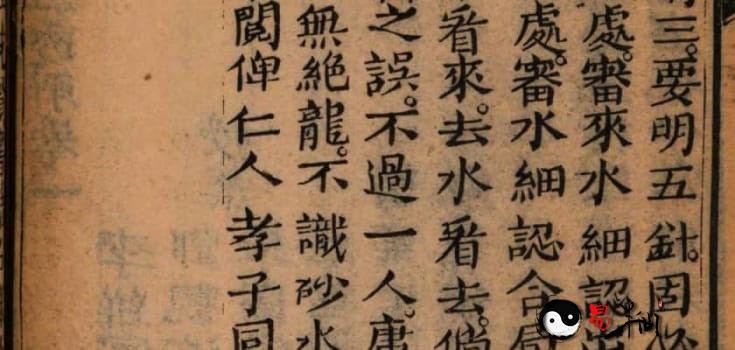 三。要明五針。固
處。審來水細認
處。審水細認合局
看來。去水看去。倘
之誤。不過一人。庸
無絕龍。不識砂水
閱俾仁人孝子同
易